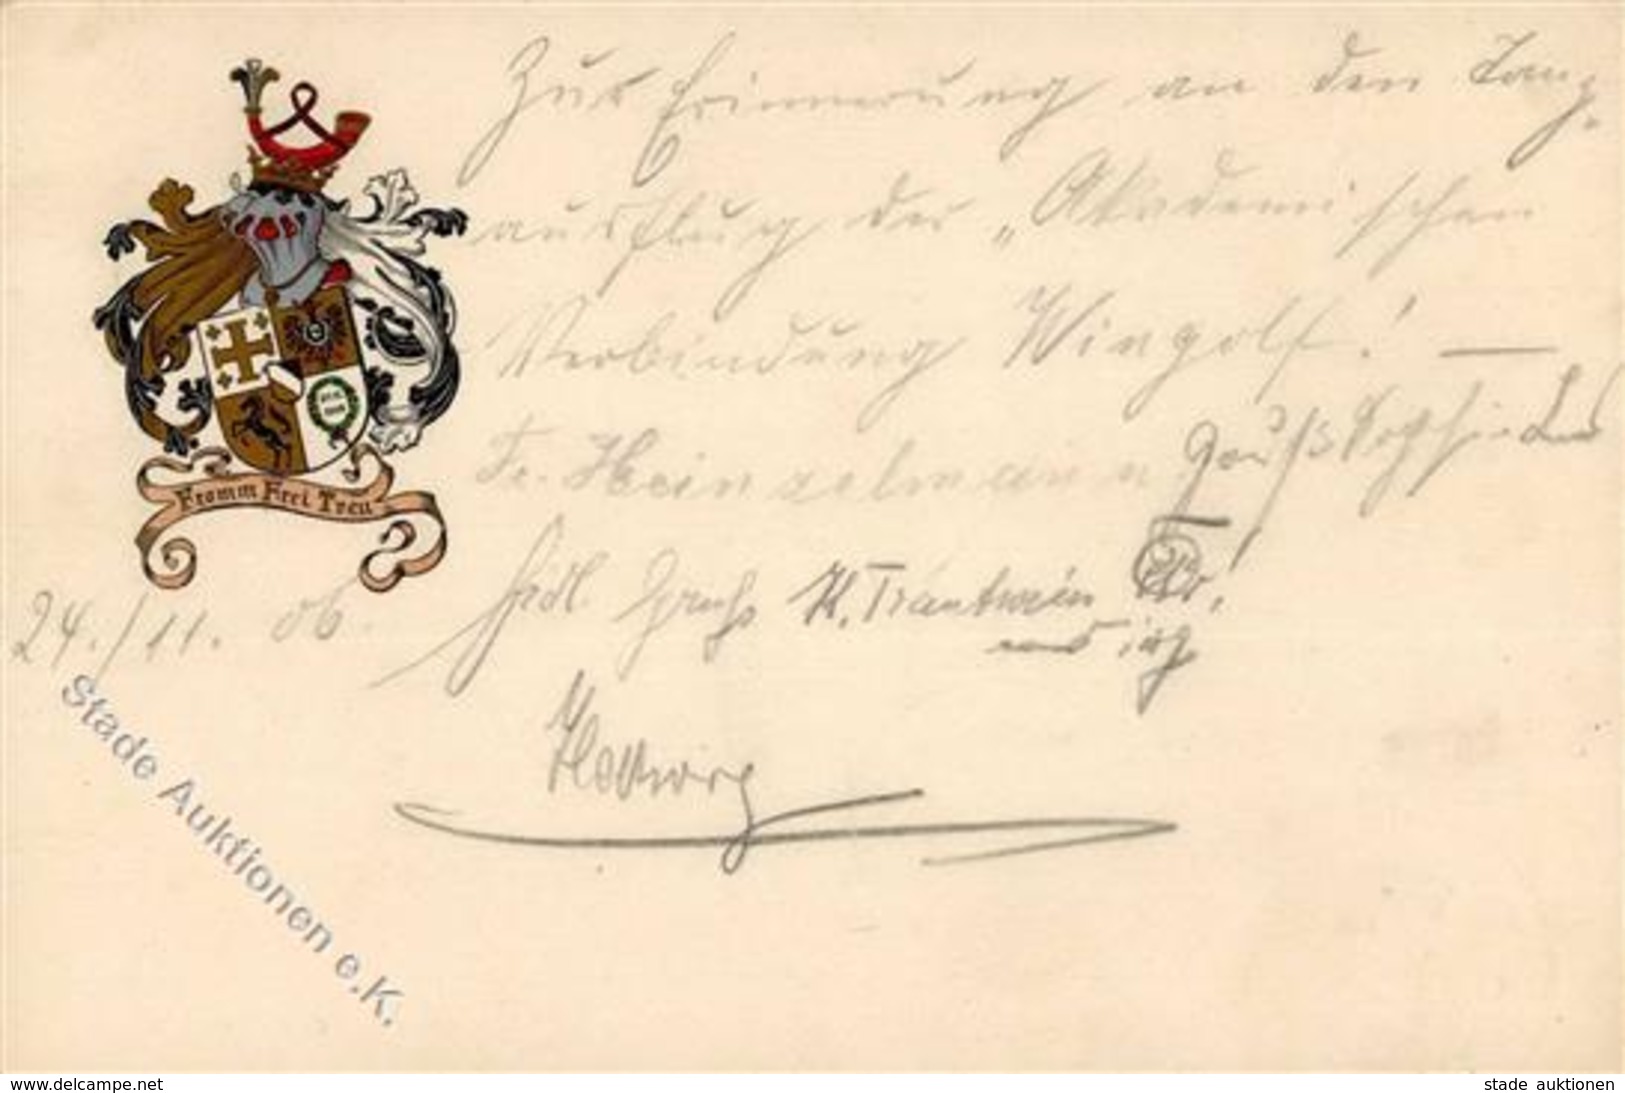 Zur Erinnerung an den Tanz-
ausflug der „Akademischen
Verbindung Wingolf! —
Fr. Heinzelmann
Frdl. Gruß K. Trautwein
und ich
Hedwig
24./11. 06.
Fromm Frei Treu
Stade Auktionen e.K.
www.delcampe.net
stade auktionen